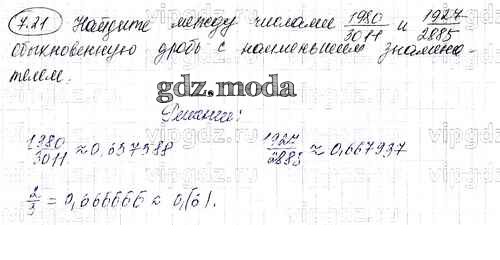 7.21 Найдите между числами 1980/3011 и 1927/2885
обыкновенную дробь с наименьшим знамена-
телем.
gdz.moda
Решение:
1980/3011 ≈ 0,657588 1927/2885 ≈ 0,667937
2/3 = 0,666666 ≈ 0,(6).